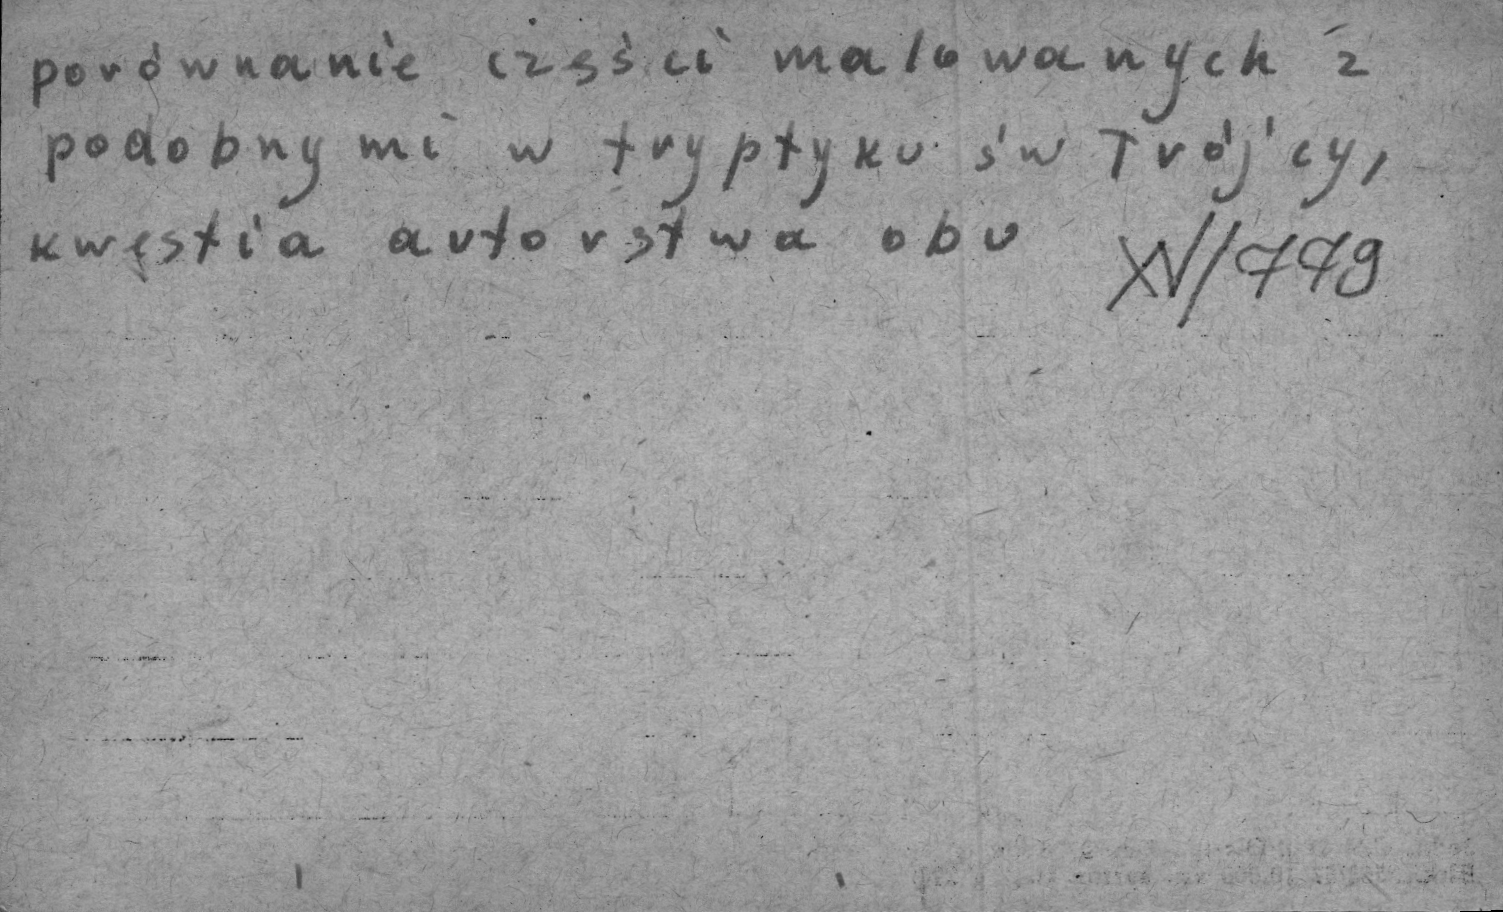 porównanie części malowanych z
podobnymi w tryptyku św Trójcy,
kwęstia autorstwa obu XV/779